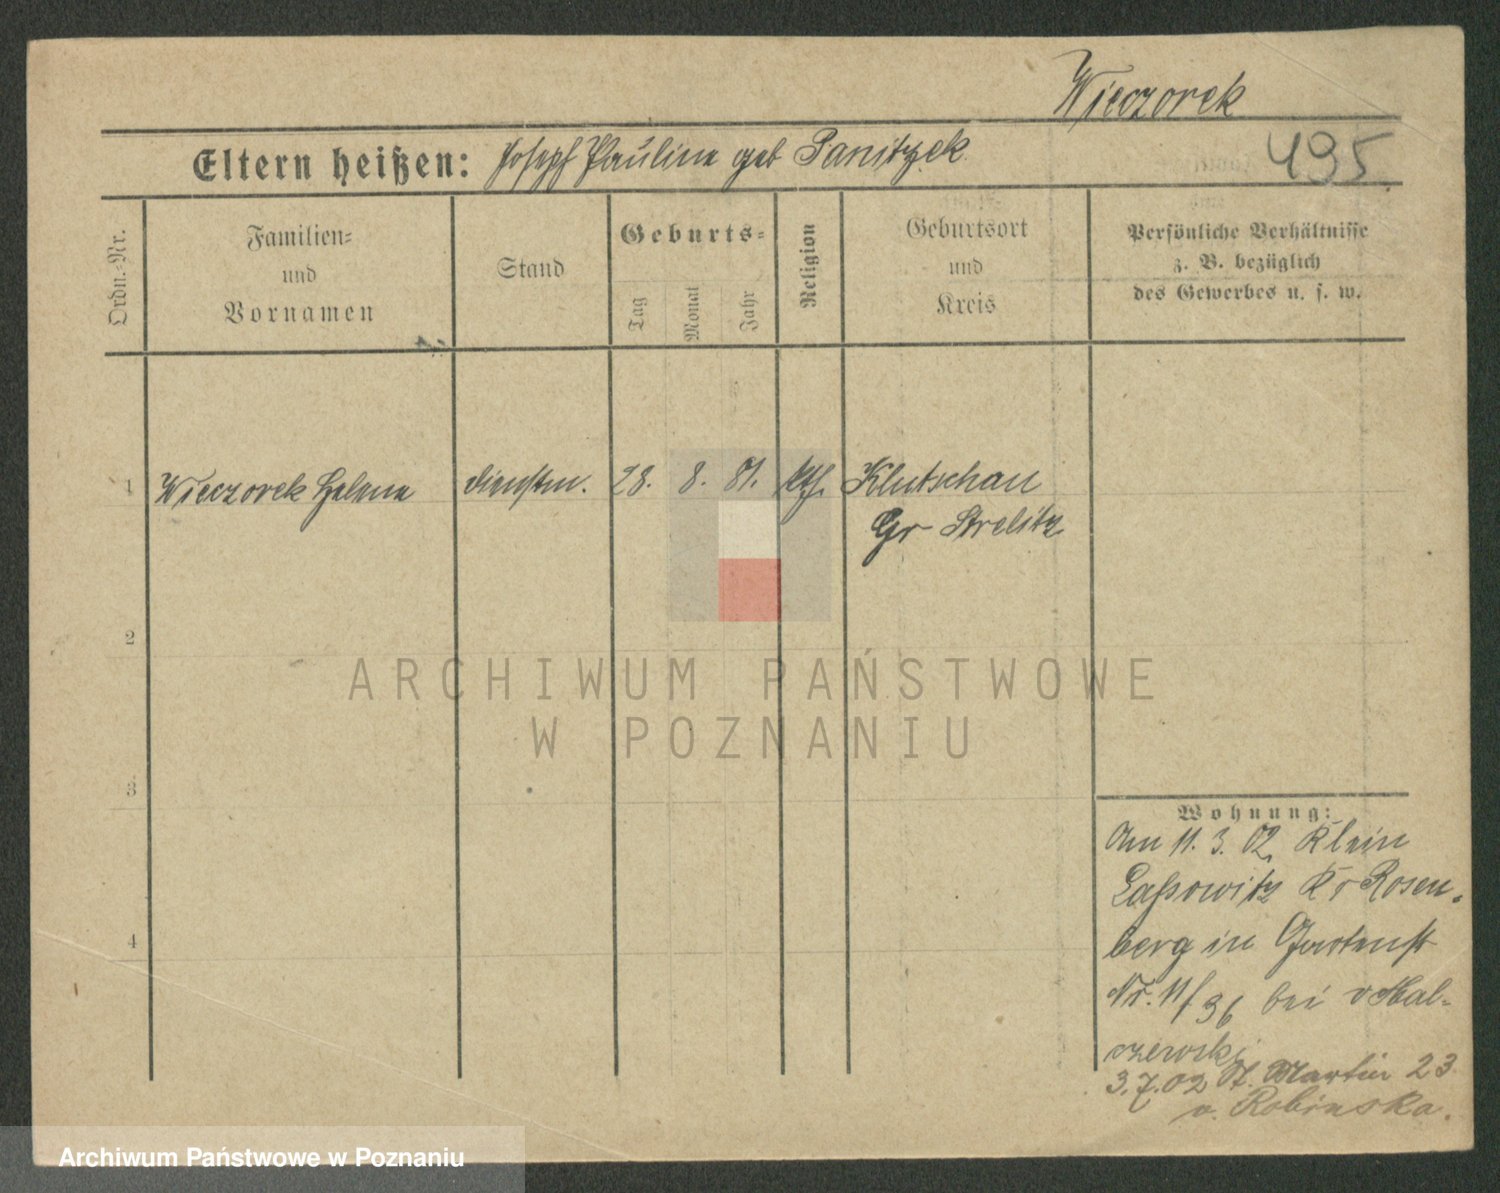 Wieczorek
Eltern heißen: Joseph Paulina geb Panitzek
495
Ordn.-Nr.
Familien-
und
Vornamen
Stand
Geburts-
Tag
Monat
Jahr
Religion
Geburtsort
und
Kreis
Persönliche Verhältnisse
z. B. bezüglich
des Gewerbes u. s. w.
1 Wieczorek Helena dienstm. 28. 8. 81. kth. Klutschau
Gr Strelitz
2
3
4
ARCHIWUM PAŃSTWOWE
W POZNANIU
Wohnung:
Am 11. 3. 02 Klein
Laßowitz Kr Rosen-
berg in Gartenstr
Nr. 11/36 bei v Mal-
czewski
3.7.02 St. Martin 23
v. Robinska.
Archiwum Państwowe w Poznaniu